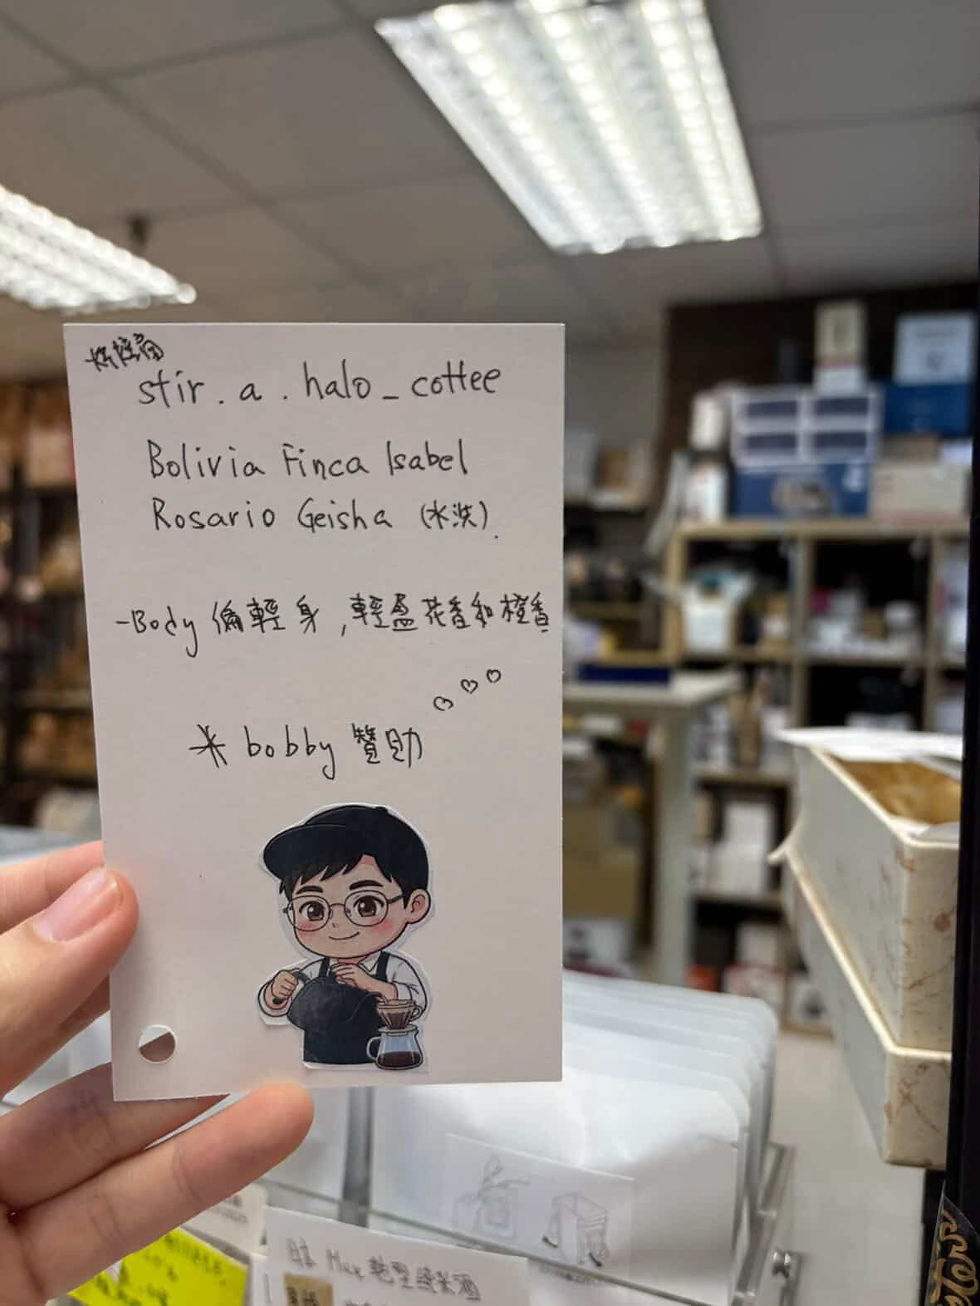 烘焙商
stir . a . halo _ coffee
Bolivia Finca Isabel
Rosario Geisha (水洗).
-Body 偏輕身 , 輕盈花香和橙香
米 bobby 贊助